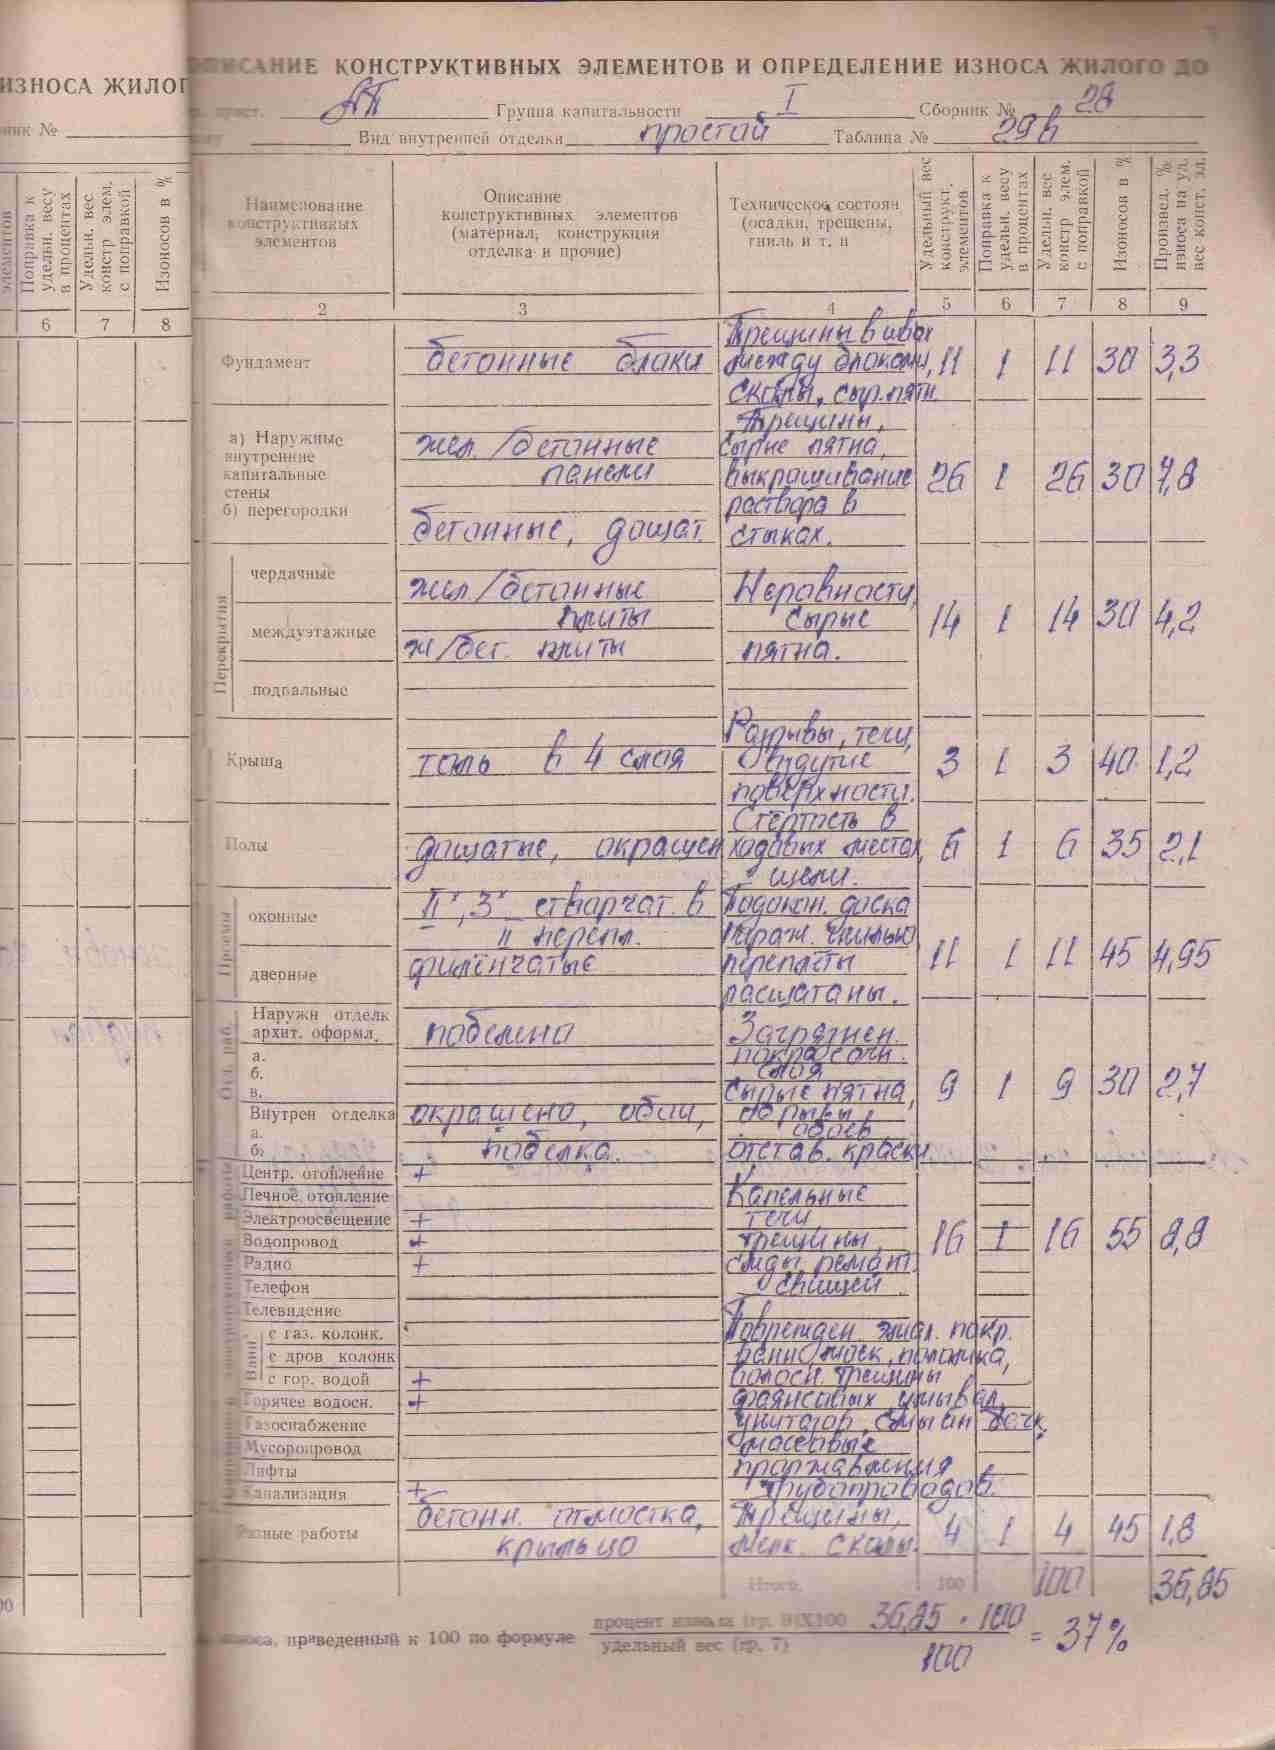 ИЗНОСА ЖИЛОГ
ник №
элементов
Поправка к удельн. весу в процентах
Удельн. вес констр элем. с поправкой
Изоносов в %
6 7 8
ОПИСАНИЕ КОНСТРУКТИВНЫХ ЭЛЕМЕНТОВ И ОПРЕДЕЛЕНИЕ ИЗНОСА ЖИЛОГО ДО
АТ Группа капитальности I Сборник № 28
Вид внутренней отделки простой Таблица № 29в
Наименование
конструктивных
элементов
Описание
конструктивных элементов
(материал, конструкция
отделка и прочие)
Техническое состоян
(осадки, трещены,
гниль и т. п
Удельный вес конструкт. элементов
Поправка к удельн. весу в процентах
Удельн. вес констр элем. с поправкой
Изоносов в %
Произвед. % износа на уд. вес конст. эл.
2 3 4 5 6 7 8 9
Трещины в швах
Фундамент бетонные блоки между блоками, 11 1 11 30 3,3
сколы, сыр. пятн.
Трещины,
а) Наружные
внутренние
капитальные
стены
б) перегородки
жел./бетонные сырые пятна,
панели выкрашивание 26 1 26 30 7,8
раствора в
бетонные, дощат. стыках.
Перекрытия
чердачные жел/бетонные Неровности,
плиты сырые 14 1 14 30 4,2
междуэтажные ж/бет. плиты пятна.
подвальные
Разрывы, течи,
Крыша толь в 4 слоя вздутие 3 1 3 40 1,2
поверхности.
Стёртость в
Полы дощатые, окрашен ходовых местах, 6 1 6 35 2,1
щели.
Проемы
оконные II<sup>х</sup>, 3<sup>х</sup> створчат. в Подокон. доска
II перепл. пораж. гнилью 11 1 11 45 4,95
дверные филёнчатые переплёты
расшатаны.
Отд. раб.
Наружн отделк
архит. оформл. побелена Загрязнен.
а. покрасочн.
б. слоя
в. сырые пятна, 9 1 9 30 2,7
Внутрен отделка окрашено, обои, обрывы
а. обоев
б. побелка. отстав. краски.
Центр. отопление +
Печное отопление Капельные
Электроосвещение + течи,
Водопровод + трещины, 16 1 16 55 8,8
Радио + следы ремонт.
Телефон свищей.
Телевидение
Ванны
с газ. колонк. Поврежден. эмал. покр.
с дров колонк ванн, моек, поломка,
с гор. водой + волосн. трещины
Горячее водосн. + фаянсовых умывал.
Газоснабжение унитазов, смывн бачк,
Мусоропровод массовые
Лифты проржавления
Канализация + трубопроводов.
Разные работы бетонн. отмостка, Трещины,
крыльцо мелк. сколы. 4 1 4 45 1,8
Итого. 100 100 36,85
износа, приведенный к 100 по формуле
процент износа (гр. 9)X100
удельный вес (гр. 7)
36,85 · 100
100
= 37%